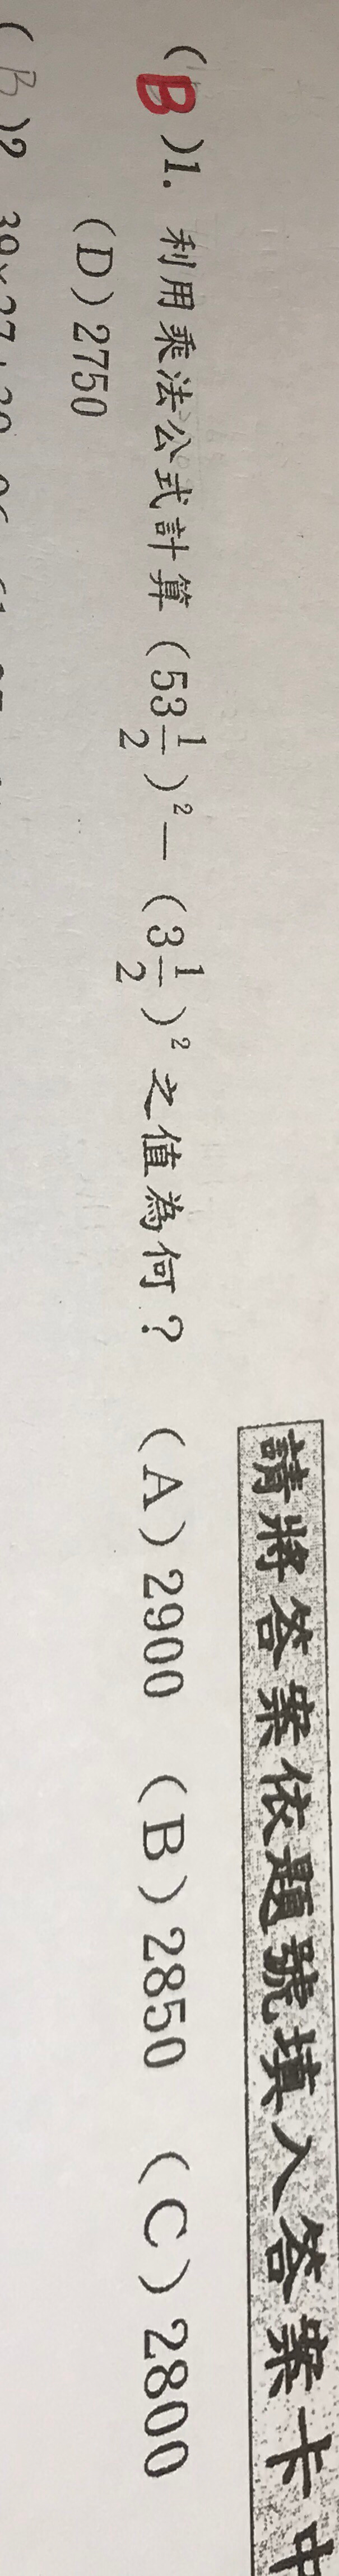 請將答案依題號填入答案卡中
(B)1. 利用乘法公式計算(53\frac{1}{2})²－(3\frac{1}{2})²之值為何？ (A)2900 (B)2850 (C)2800
(D)2750
(B)2